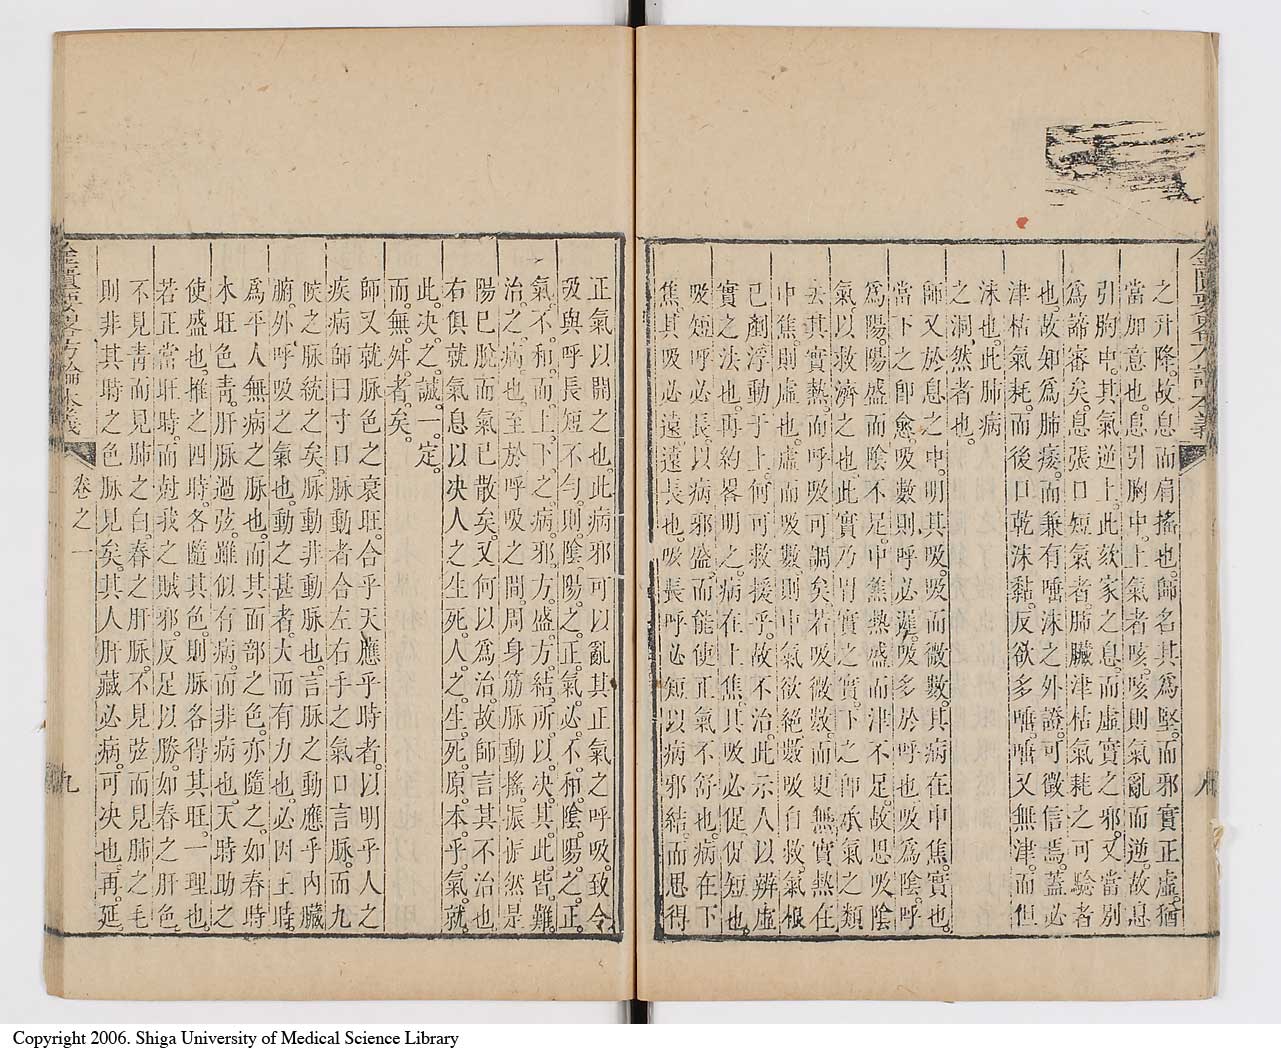 之升降故息而肩搖也師名其爲堅而邪實正虛猶
當加意也息引胸中上氣者咳咳則氣亂而逆故息
引胸中其氣逆上此欬家之息而虛實之邪又當別
爲諦審矣息張口短氣者肺臟津枯氣耗之可驗者
也故知爲肺痿而兼有唾沫之外證可徵信焉蓋必
津枯氣耗而後口乾沫黏反欲多唾唾又無津而但
沫也此肺病
之洞然者也
師又於息之中明其吸吸而微數其病在中焦實也
當下之卽愈吸數則呼必遲吸多於呼也吸爲陰呼
爲陽陽盛而陰不足中焦熱盛而津不足故思吸陰
氣以救濟之也此實乃胃實之實下之卽承氣之類
去其實熱而呼吸可調矣若吸微數而更無實熱在
中焦則虛也虛而吸數則中氣欲絕數吸自救氣根
已剷浮動于上何可救援乎故不治此示人以辨虛
實之法也再約畧明之病在上焦其吸必促促短也
吸短呼必長以病邪盛而能使正氣不舒也病在下
焦其吸必遠遠長也吸長呼必短以病邪結而思得
金匱要畧方論本義
八
正氣以開之也此病邪可以亂其正氣之呼吸致令
吸與呼長短不勻則陰陽之正氣必不和陰陽之正
氣不和而上下之病邪方盛方結所以决其此皆難
治之病也至於呼吸之間周身筋脉動搖振振然是
陽已脫而氣已散矣又何以爲治故師言其不治也
右俱就氣息以决人之生死人之生死原本乎氣就
此决之誠一定
而無舛者矣
師又就脉色之衰旺合乎天應乎時者以明乎人之
疾病師曰寸口脉動者合左右手之氣口言脉而九
候之脉統之矣脉動非動脉也言脉之動應乎內臟
腑外呼吸之氣也動之甚者大而有力也必因王時
爲平人無病之脉也而其面部之色亦隨之如春時
木旺色靑肝脉過弦雖似有病而非病也天時助之
使盛也推之四時各隨其色則脉各得其旺一理也
若正當旺時而尅我之賊邪反足以勝如春之肝色
不見靑而見肺之白春之肝脉不見弦而見肺之毛
則非其時之色脉見矣其人肝藏必病可决也再延
金匱要畧方論本義
卷之一
九
Copyright 2006. Shiga University of Medical Science Library